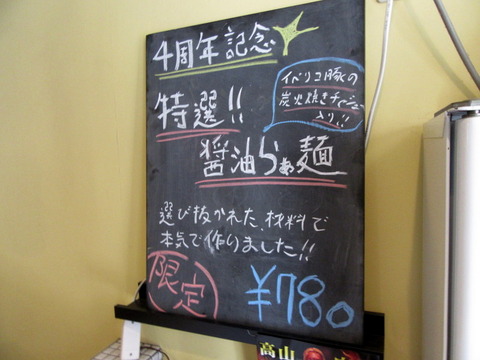 4周年記念
特選!!
イベリコ豚の
炭火焼きチャーシュー
入り!!
醤油らぁ麺
選び抜かれた、材料で
本気で作りました!!
限定
¥780
高山